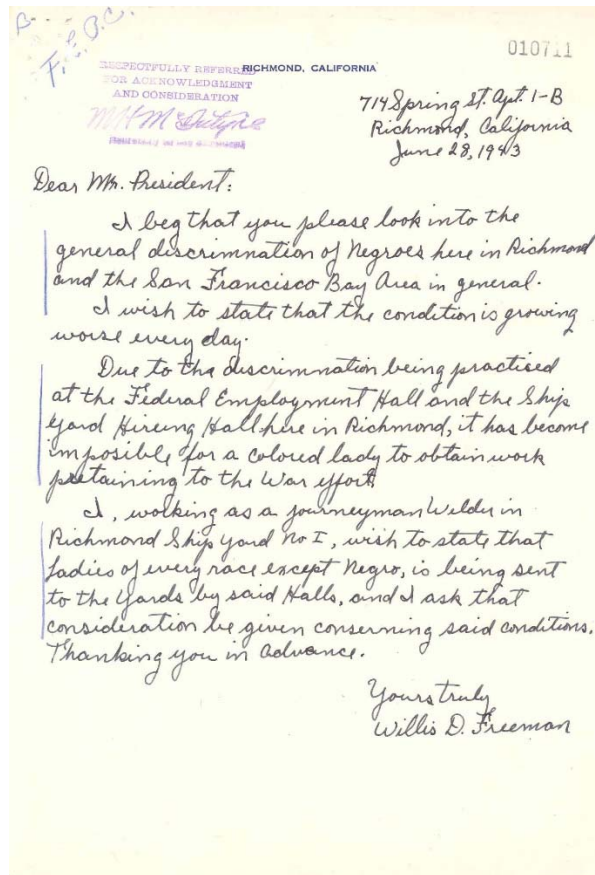 B-
F.E.P.C.
010711
RESPECTFULLY REFERRED
FOR ACKNOWLEDGMENT
AND CONSIDERATION
M H McIntyre
RICHMOND, CALIFORNIA
714 Spring St. Apt. 1-B
Richmond, California
June 28, 1943
Dear Mr. President:
I beg that you please look into the
general discrimnation of Negroes here in Richmond
and the San Francisco Bay Area in general.
I wish to state that the condition is growing
worse every day.
Due to the discrimnation being practised
at the Federal Employment Hall and the Ship
Yard Hireing Hall here in Richmond, it has become
imposible for a colored lady to obtain work
pretaining to the War effort.
I, working as a journeyman Welder in
Richmond Ship Yard No I, wish to state that
Ladies of every race except Negro, is being sent
to the Yards by said Halls, and I ask that
consideration be given conserning said conditions.
Thanking you in advance.
Yours truly
Willis D. Freeman